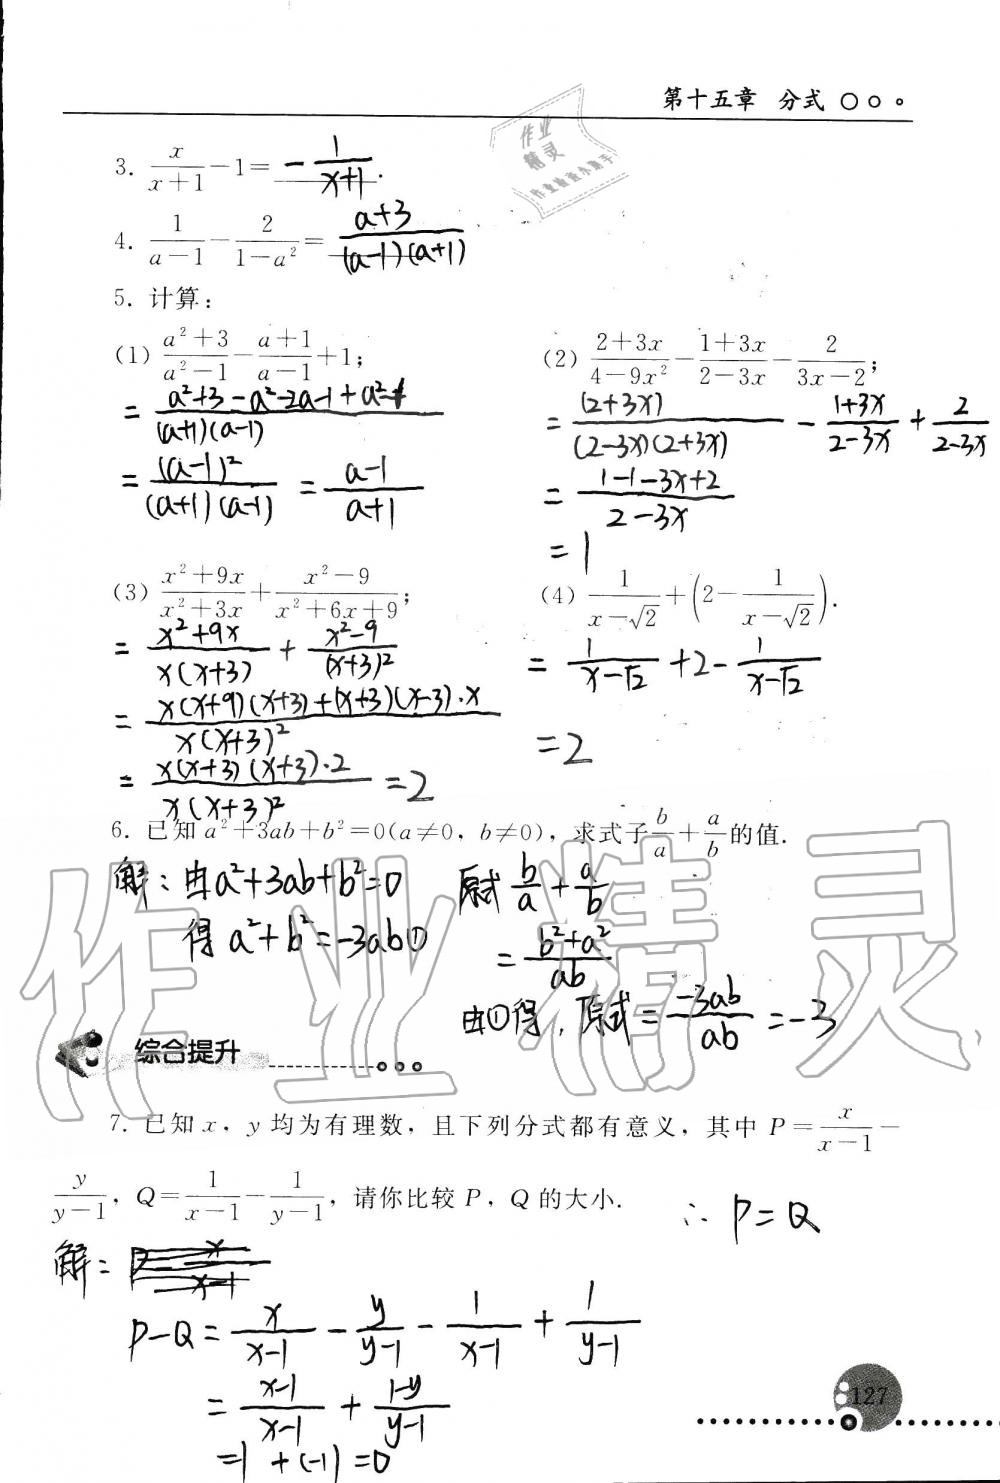 第十五章 分式
作业
精灵
作业检查小助手
3. x/(x+1) - 1 = -1/(x+1).
4. 1/(a-1) - 2/(1-a²) = (a+3)/((a-1)(a+1))
5. 计算:
(1) (a²+3)/(a²-1) - (a+1)/(a-1) + 1;
= (a²+3-a²-2a-1+a²-1)/((a+1)(a-1))
= (a-1)²/((a+1)(a-1)) = (a-1)/(a+1)
(2) (2+3x)/(4-9x²) - (1+3x)/(2-3x) - 2/(3x-2);
= (2+3x)/((2-3x)(2+3x)) - (1+3x)/(2-3x) + 2/(2-3x)
= (1-1-3x+2)/(2-3x)
= 1
(3) (x²+9x)/(x²+3x) + (x²-9)/(x²+6x+9);
= (x²+9x)/(x(x+3)) + (x²-9)/(x+3)²
= (x(x+9)(x+3)+(x+3)(x-3)·x)/(x(x+3)²)
= (x(x+3)(x+3)·2)/(x(x+3)²) = 2
(4) 1/(x-√2) + (2 - 1/(x-√2)).
= 1/(x-√2) + 2 - 1/(x-√2)
= 2
6. 已知 a²+3ab+b²=0(a≠0, b≠0), 求式子 b/a + a/b 的值.
解: 由a²+3ab+b²=0
得 a²+b²=-3ab①
原式 b/a + a/b
= (b²+a²)/ab
由①得, 原式 = -3ab/ab = -3
综合提升
7. 已知 x, y 均为有理数, 且下列分式都有意义, 其中 P = x/(x-1) -
y/(y-1), Q = 1/(x-1) - 1/(y-1), 请你比较 P, Q 的大小.
∴ P=Q
解:
P-Q = x/(x-1) - y/(y-1) - 1/(x-1) + 1/(y-1)
= (x-1)/(x-1) + (1-y)/(y-1)
=1 + (-1) =0
127
作业精灵